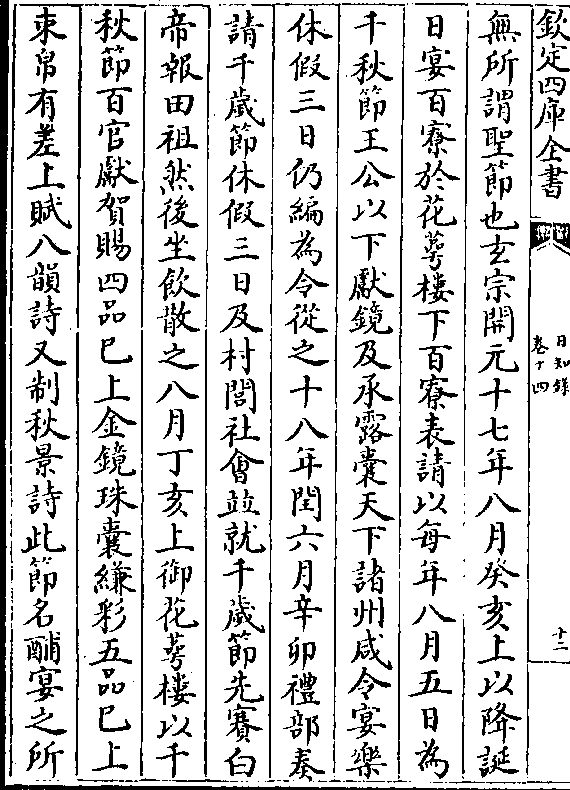 欽定四庫全書
日知録
卷十四
十二
無所謂聖節也玄宗開元十七年八月癸亥上以降誕
日宴百寮於花萼樓下百寮表請以每年八月五日為
千秋節王公以下獻鏡及承露囊天下諸州咸令宴樂
休假三日仍編為令從之十八年閏六月辛卯禮部奏
請千歲節休假三日及村閭社會並就千歲節先賽白
帝報田祖然後坐飲散之八月丁亥上御花萼樓以千
秋節百官獻賀賜四品已上金鏡珠囊縑彩五品已上
束帛有差上賦八韻詩又制秋景詩此節名酺宴之所